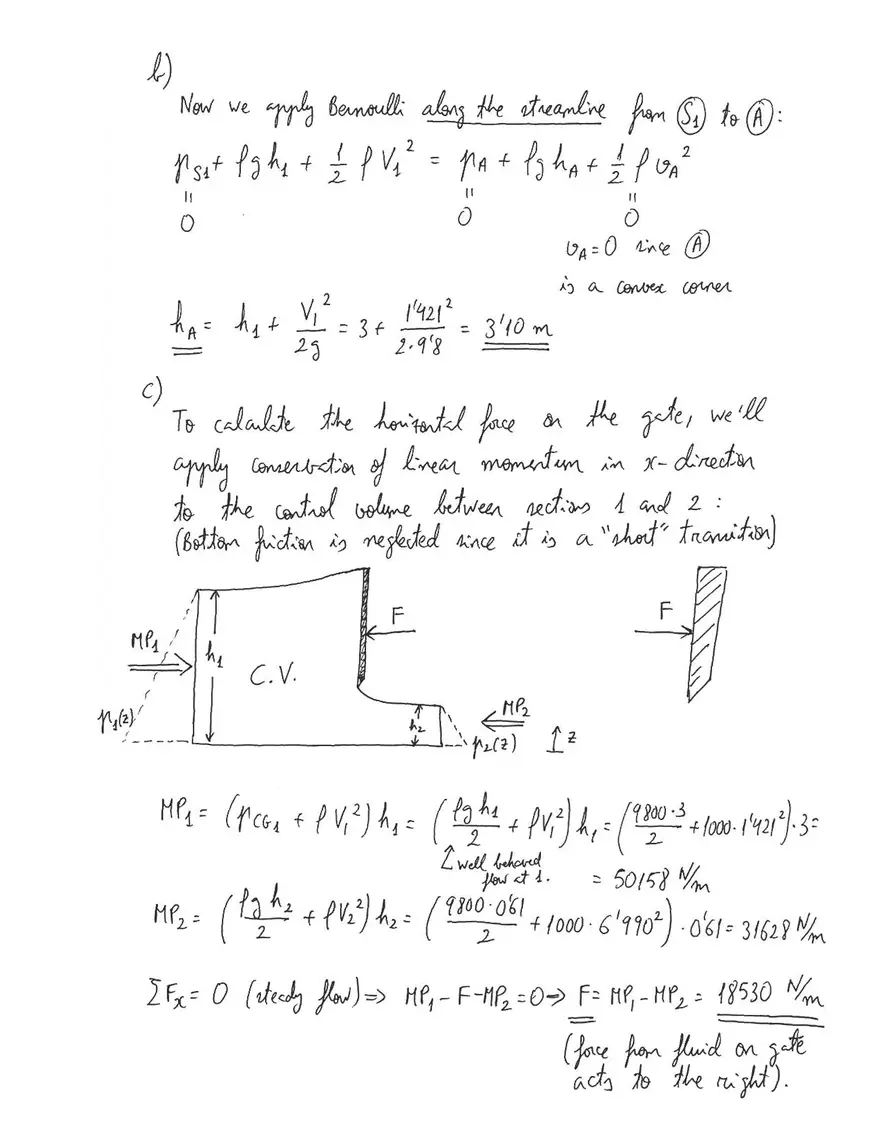 b)
Now we apply Bernoulli along the streamline from (S1) to (A):
p_S1 + ρgh₁ + 1/2 ρV₁² = p_A + ρgh_A + 1/2 ρv_A²
" " "
0 0 0
v_A = 0 since (A)
is a convex corner
h_A = h₁ + V₁²/2g = 3 + 1'421²/2·9'8 = 3'10 m
c)
To calculate the horizontal force on the gate, we'll
apply conservation of linear momentum in x-direction
to the control volume between sections 1 and 2 :
(Bottom friction is neglected since it is a "short" transition)
F
F
MP₁
h₁
C.V.
MP₂
p₁(z)
h₂
p₂(z)
z
MP₁ = (p_CG1 + ρV₁²) h₁ = (ρgh₁/2 + ρV₁²) h₁ = (9800·3/2 + 1000·1'421²)·3 =
well behaved
flow at 1.
= 50158 N/m
MP₂ = (ρgh₂/2 + ρV₂²) h₂ = (9800·0'61/2 + 1000·6'990²)·0'61 = 31628 N/m
ΣFx = 0 (steady flow) ⇒ MP₁ - F - MP₂ = 0 → F = MP₁ - MP₂ = 18530 N/m
(force from fluid on gate
acts to the right).